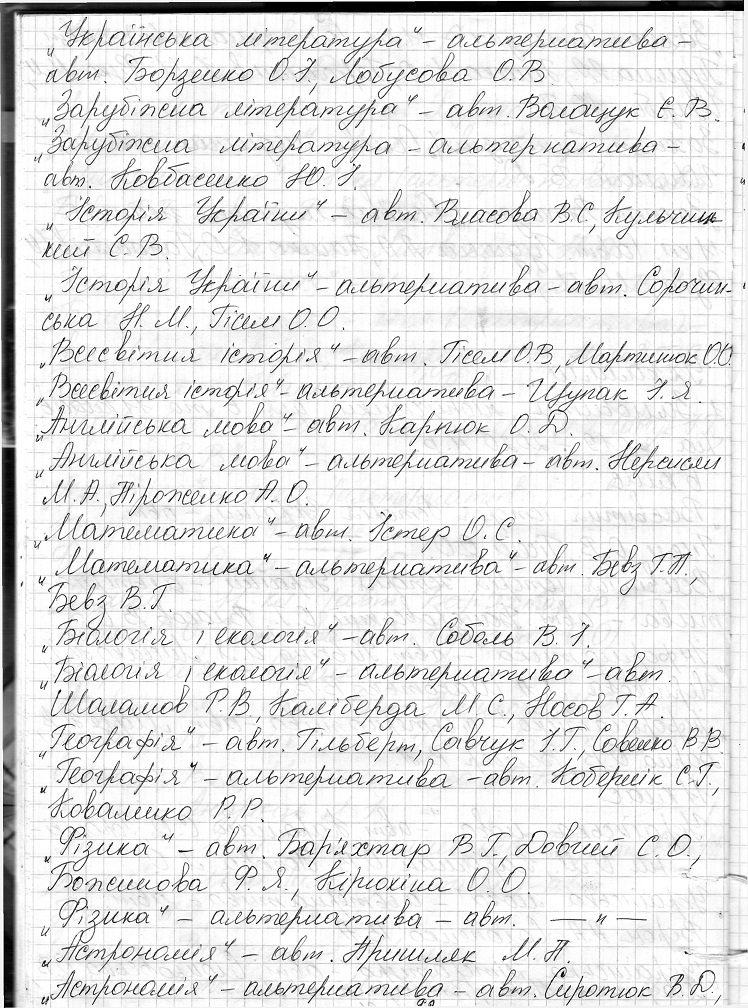 „Українська література" – альтернатива –
авт. Борзенко О.І, Лобусова О.В
„Зарубіжна література" – авт. Волощук Є.В.
„Зарубіжна література – альтернатива –
авт. Ковбасенко Ю.І.
„Історія України" – авт. Власова В.С, Кульчиць
кий С.В.
„Історія України" – альтернатива – авт. Сорочин-
ська Н.М., Гісем О.О.
„Всесвітня історія" – авт. Гісем О.В, Мартинюк О.О
„Всесвітня історія" – альтернатива – Щупак І.Я.
„Англійська мова" – авт. Карпюк О.Д.
„Англійська мова" – альтернатива – авт. Нерсисян
М.А, Піроженко А.О.
„Математика" – авт. Істер О.С.
„Математика" – альтернатива" – авт. Бевз Г.П.,
Бевз В.Г.
„Біологія і екологія" – авт. Соболь В.І.
„Біологія і екологія" – альтернатива" – авт.
Шаламов Р.В, Каліберда М.С., Носов Г.А.
„Географія" – авт. Гільберт, Савчук І.Г, Совенко В.В
„Географія" – альтернатива – авт. Кобернік С.Г.,
Коваленко Р.Р.
„Фізика" – авт. Бар'яхтар В.Г., Довгий С.О.,
Божинова Ф.Я., Кірюхіна О.О.
„Фізика" – альтернатива – авт. — " —
„Астрономія" – авт. Пришляк М.П.
„Астрономія" – альтернатива – авт. Сиротюк В.Д.,